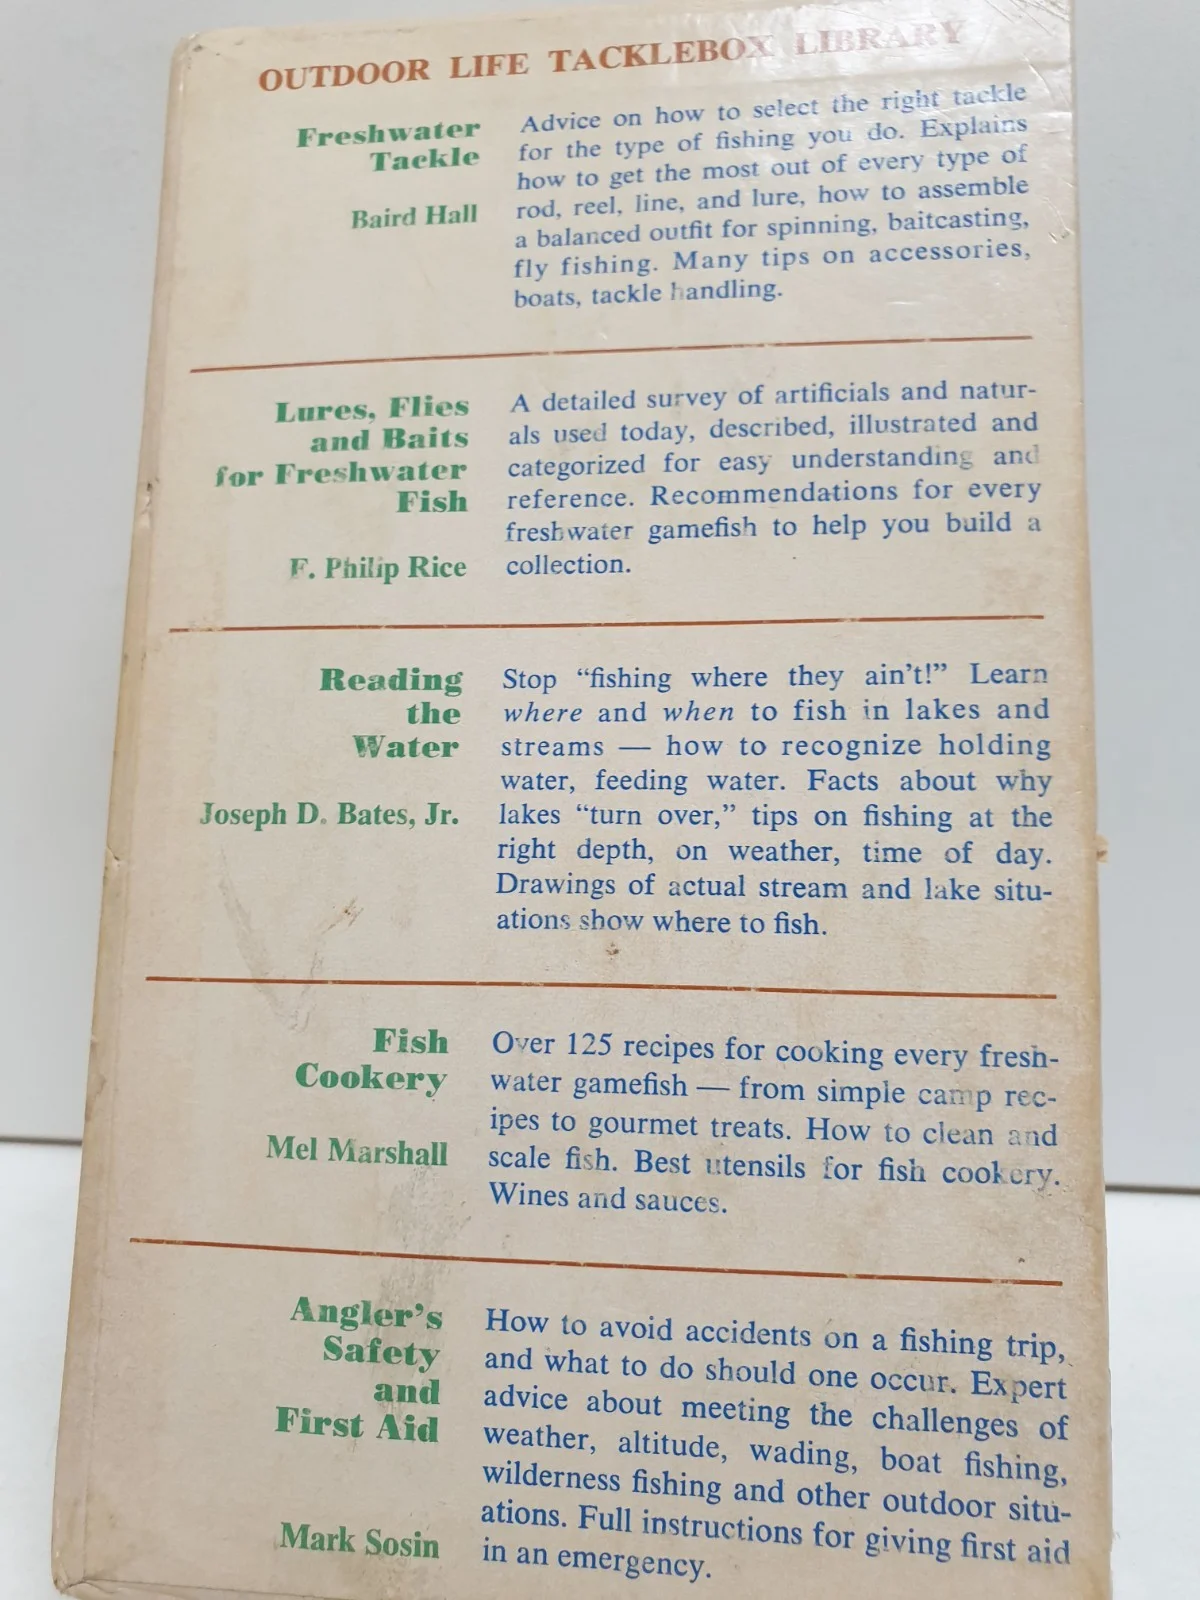 OUTDOOR LIFE TACKLEBOX LIBRARY
Freshwater
Tackle
Baird Hall
Advice on how to select the right tackle
for the type of fishing you do. Explains
how to get the most out of every type of
rod, reel, line, and lure, how to assemble
a balanced outfit for spinning, baitcasting,
fly fishing. Many tips on accessories,
boats, tackle handling.
Lures, Flies
and Baits
for Freshwater
Fish
F. Philip Rice
A detailed survey of artificials and natur-
als used today, described, illustrated and
categorized for easy understanding and
reference. Recommendations for every
freshwater gamefish to help you build a
collection.
Reading
the
Water
Joseph D. Bates, Jr.
Stop “fishing where they ain’t!” Learn
where and when to fish in lakes and
streams — how to recognize holding
water, feeding water. Facts about why
lakes “turn over,” tips on fishing at the
right depth, on weather, time of day.
Drawings of actual stream and lake situ-
ations show where to fish.
Fish
Cookery
Mel Marshall
Over 125 recipes for cooking every fresh-
water gamefish — from simple camp rec-
ipes to gourmet treats. How to clean and
scale fish. Best utensils for fish cookery.
Wines and sauces.
Angler’s
Safety
and
First Aid
Mark Sosin
How to avoid accidents on a fishing trip,
and what to do should one occur. Expert
advice about meeting the challenges of
weather, altitude, wading, boat fishing,
wilderness fishing and other outdoor situ-
ations. Full instructions for giving first aid
in an emergency.